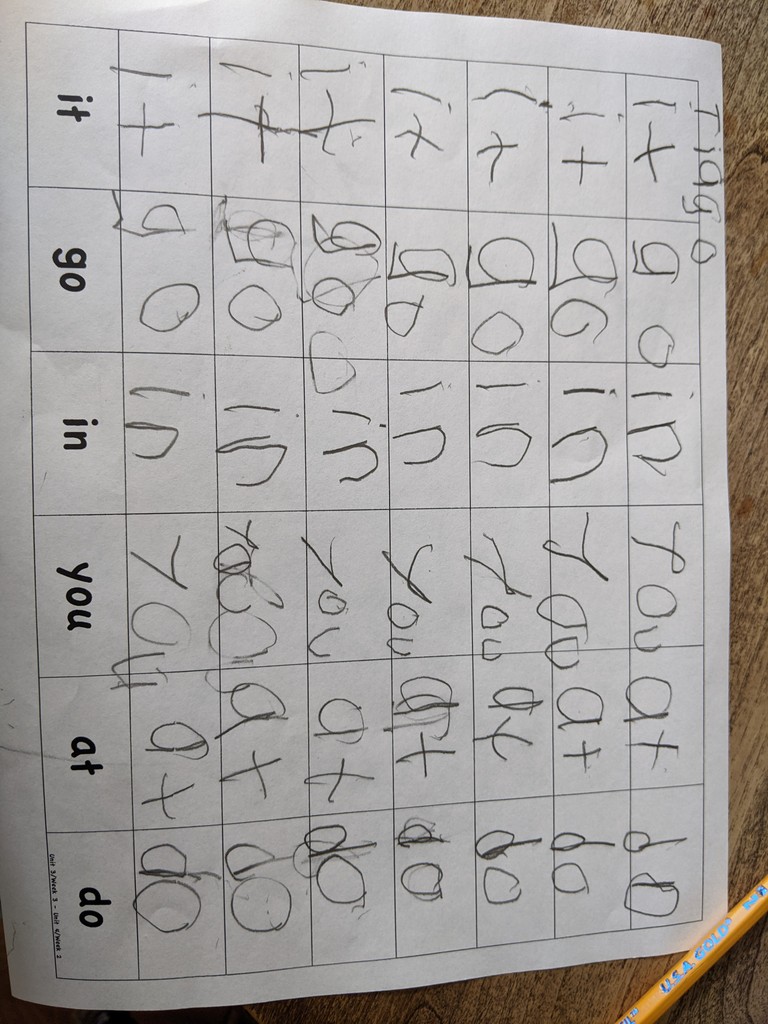 Tiago
it go in you at do
it go in you at do
it go in you at do
it go in you at do
it go in you at do
it go in you at do
it go in you at do
it go in you at do
Unit 3/Week 3 - Unit 4/Week 2
U.S.A. GOLD